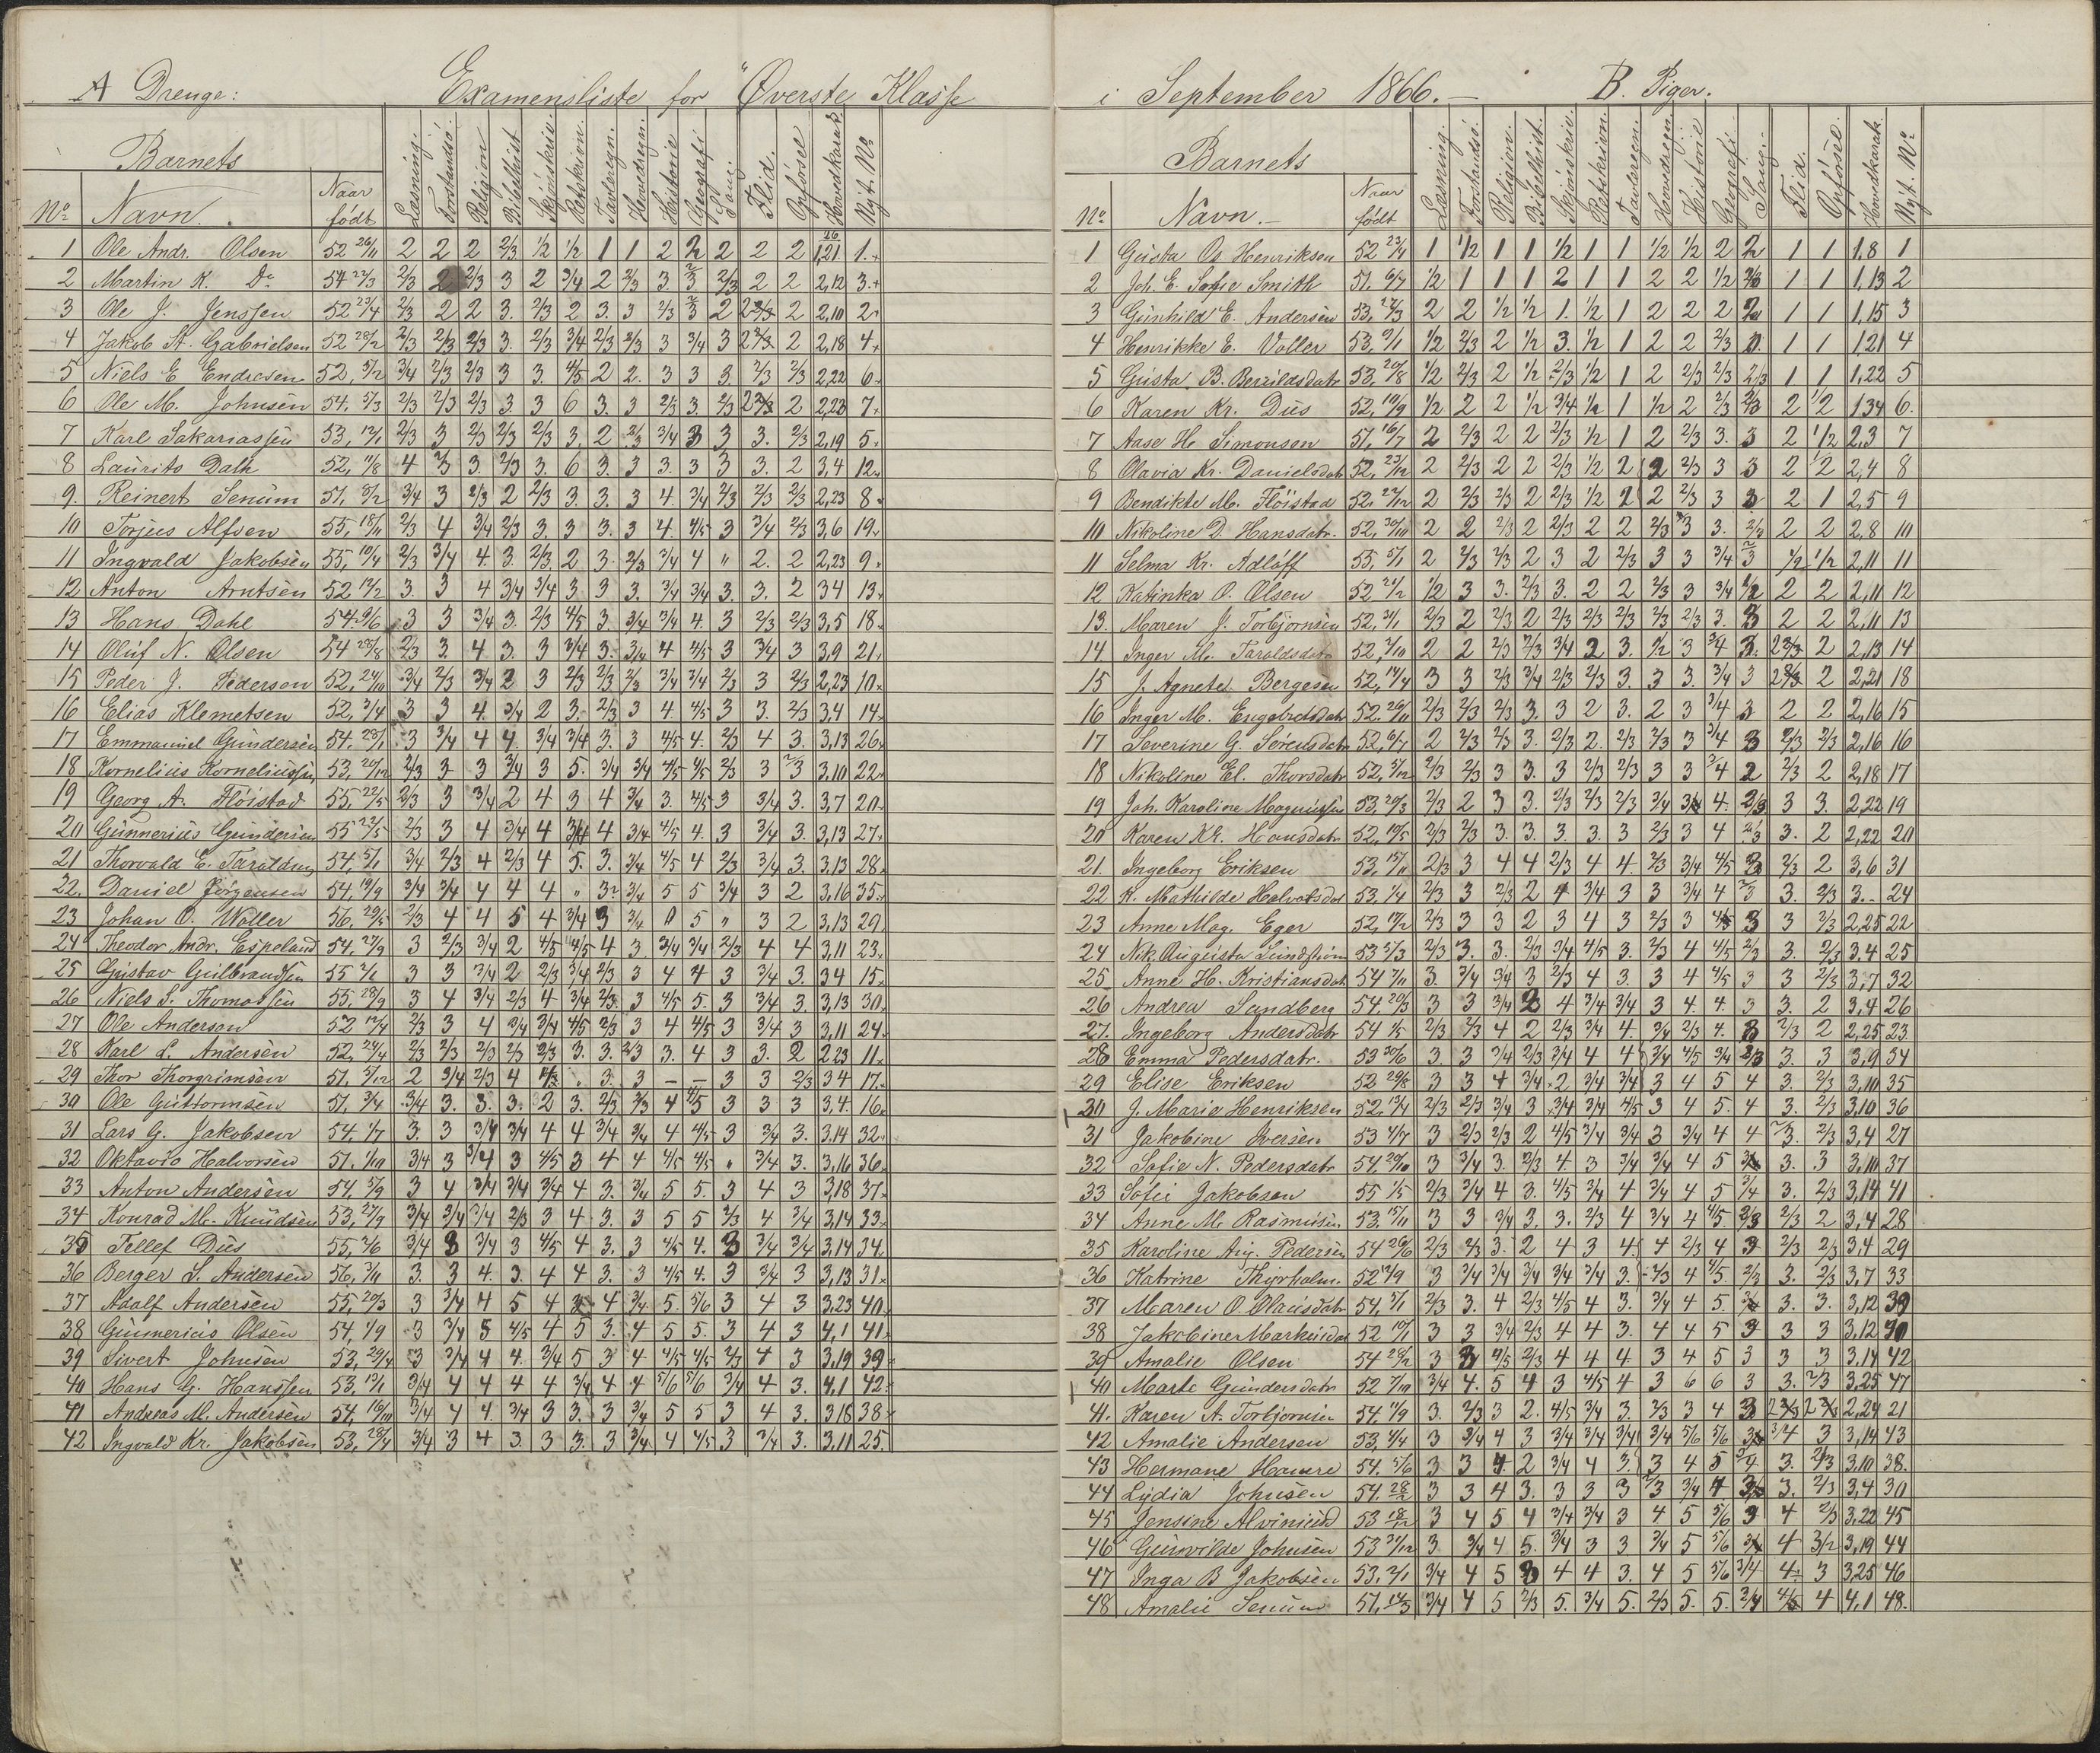 A Drenge: Examensliste for Øverste Klasse
Barnets
No Navn. Naar født Læsning. Forstandsö. Religion Bibelhist Skjönskriv. Retskrivn. Tavleregn. Hovedregn. Historie Geografi Sang. Flid. Opförsel Hovedkarak. Nyt. No
1 Ole Andr. Olsen 52 26/11 2 2 2 2/3 1/2 1/2 1 1 2 2 2 2 2 1,21 1.
2 Martin K. Do 54 22/3 2/3 2 2/3 3 2 3/4 2 2/3 3. 2/3 2/3 2 2 2,12 3.
3 Ole J. Jenssen 52 23/4 2/3 2 2 3. 2/3 2 3. 3 2/3 2/3 2 2 2,10 2
4 Jakob St. Gabrielsen 52 28/2 2/3 2/3 2/3 3. 2/3 3/4 2/3 2/3 3 3/4 3 2 2,18 4
5 Niels E Endresen 52, 5/12 3/4 2/3 2/3 3 3. 4/5 2 2. 3 3 3. 2/3 2/3 2,22 6
6 Ole M. Johnsen 54. 5/3 2/3 2/3 2/3 3. 3 6 3. 3 2/3 3. 2/3 2 2,23 7
7 Karl Sakariassen 53, 12/1 2/3 3 2/3 2/3 2/3 3. 2 2/3 3/4 3 3 3. 2/3 2,19 5
8 Laurits Dahl 52, 11/8 4 2/3 3. 2/3 3. 6 3. 3 3. 3 3 3. 2 3,4 12
9. Reinert Senum 51. 3/4 3 2/3 2 2/3 3. 3. 3 4. 3/4 2/3 2/3 2/3 2,23 8
10 Torjus Alfsen 55, 18/11 2/3 4 3/4 2/3 3. 3 3. 3 4. 4/5 3 3/4 2/3 3,6 19
11 Ingvald Jakobsen 55, 10/4 2/3 3/4 4. 3. 2/3 2 3. 2/3 3/4 4 " 2. 2 2,23 9
12 Anton Arntsen 52 3. 3 4 3/4 3/4 3 3 3. 3/4 3/4 3. 3. 2 3 4 13
13 Hans Dahl 54. 9/6 3 3 3/4 3. 2/3 4/5 3 3/4 3/4 4. 3 2/3 2/3 3,5 18
14 Oluf N. Olsen 54 25/8 2/3 3. 4 3. 3 3/4 3. 3/4 4 4/5 3 3/4 3 3,9 21
15 Peder J. Pederson 52, 24/10 3/4 2/3 3/4 2 3 2/3 2/3 2/3 3/4 3/4 2/3 3 2/3 2,23 10
16 Elias Klemetsen 52, 3/4 3 3 4. 3/4 2 3. 2/3 3 4. 4/5 3 3. 2/3 3,4 14
17 Emmanuel Gundersen 54. 28/1 3 3/4 4 4 3/4 3/4 3. 3 4/5 4. 2/3 4 3. 3,13 26
18 Kornelius Korneliussen 53, 20/12 2/3 3 3 3/4 3 5. 3/4 3/4 4/5 4/5 2/3 3 3,10 22
19 Georg A. Flöistad 55, 22/5 2/3 3 3/4 2 4 3 4 3/4 3. 4/5 3 3/4 3. 3,7 20
20 Gunnerius Gundersen 55 22/5 2/3 3 4 3/4 4 3/4 4 3/4 4/5 4. 3 3/4 3. 3,13 27
21 Thorvald E. Taraldsen 54, 5/1 3/4 2/3 4 2/3 4 5. 3. 3/4 4/5 4 2/3 3/4 3. 3,13 28
22. Daniel Jörgensen 54, 19/9 3/4 3/4 4 4 4 " 3 3/4 5 5 3/4 3 2 3,16 35
23 Johan O. Woller 56, 2/3 4 4 5 4 3/4 3 3/4 5 " 3 2 3,13 29
24 Theodor Andr. Espeland 54, 27/9 3 2/3 3/4 2 4/5 4/5 4 3. 3/4 3/4 2/3 4 4 3,11 23
25 Gustav Gulbrandsen 55 2/1 3 3 3/4 2 2/3 3/4 2/3 3 4 4 3 3/4 3. 3 4 15
26 Niels S. Thomassen 55, 28/9 3 4 3/4 2/3 4 3/4 2/3 3 4/5 5. 3 3/4 3. 3,13 30
27 Ole Anderson 52 12/4 2/3 3 4 3/4 3/4 4/5 2/3 3 4 4/5 3 3/4 3 3,11 24
28 Karl L. Andersen 52, 24/4 2/3 2/3 2/3 2/3 2/3 3. 3. 2/3 3. 4 3 3. 2 2,23 11
29 Thor Thorgrimsen 51. 5/12 2 3/4 2/3 4 " 3. 3 – – 3 3 2/3 3 4 17
30 Ole Guttormsen 51. 3/4 3/4 3. 3. 3. 2 3. 2/3 2/3 4 4/5 3 3 3 3,4. 16
31 Lars G. Jakobsen 54, 1/7 3. 3 3/4 3/4 4 4 3/4 3/4 4 4/5 3 3/4 3. 3,14 32
32 Oktavio Halvorsen 51. 1/10 3/4 3 3/4 3 4/5 3 4 4 4/5 4/5 " 3/4 3. 3,16 36
33 Anton Andersen 54, 5/9 3 4 3/4 3/4 3/4 4 3. 3/4 5 5. 3 4 3 3,18 37
34 Konrad M. Knudsen 53, 27/9 3/4 3/4 3/4 2/3 3 4 3. 3 5 5 2/3 4 3/4 3,14 33
35 Tellef Dus 55, 2/6 3/4 3 3/4 3 4/5 4 3. 3 4/5 4. 3 3/4 3/4 3,14 34
36 Berger S. Andersen 56, 3/11 3. 3 4. 3. 4 4 3. 3 4/5 4. 3 3/4 3 3,13 31
37 Adolf Andersen 55, 20/3 3 3/4 4 5 4 4 3/4 5. 5/6 3 4 3 3,23 40
38 Gunnerius Olsen 54, 1/9 3 3/4 5 4/5 4 5 3. 4 5 5. 3 4 3 4,1 41
39 Sivert Johnsen 53, 29/4 3 3/4 4 4. 3/4 5 3 4 4/5 4/5 2/3 4 3 3,19 39
40 Hans G. Hanssen 53, 13/1 3/4 4 4 4 4 3/4 4 4 5/6 5/6 3/4 4 3. 4,1 42
41 Andreas M. Andersen 54, 16/10 3/4 4 4. 3/4 3 3. 3 3/4 5 5 3 4 3. 3 18 38
42 Ingvald Kr. Jakobsen 53, 28/4 3/4 3 4 3. 3 3. 3 3/4 4 4/5 3 3/4 3. 3,11 25.
i September 1866. – B. Piger.
Barnets
No Navn. Naar født Læsning. Forstandsö. Religion. Bibelhist. Skjönskriv. Retskrivn. Tavleregn. Hovedregn. Historie Geografi. Sang. Flid. Opförsel. Hovedkarak. Nyt. No
1 Guska Os. Henriksen 52 23/4 1 1/2 1 1 1/2 1 1 1/2 1/2 2 2 1 1 1,8 1
2 Joh. E. Sofie Smith 51, 6/7 1/2 1 1 1 2 1 1 2 2 1/2 1 1 1,13 2
3 Gunhild E. Andersen 53, 2 2 1/2 1/2 1. 1/2 1 2 2 2 2 1 1 1,15 3
4 Henrikke E. Voller 53, 9/1 1/2 2/3 2 1/2 3. 1/2 1 2 2 2/3 1 1 1,21 4
5 Gusta B. Berildsdatr 53, 20/8 1/2 2/3 2 1/2 2/3 1/2 1 2 2/3 2/3 2/3 1 1 1,22 5
6 Karen Kr. Dus 52, 10/9 1/2 2 2 1/2 3/4 1/2 1 1/2 2 2/3 2/3 2 1/2 1 34 6.
7 Aase H. Simonsen 51, 16/7 2 2/3 2 2 2/3 1/2 1 2 2/3 3. 3 2 1/2 2,3 7
8 Olavia Kr. Danielsdatr 52, 23/12 2 2/3 2 2 2/3 1/2 2 2 2/3 3 3 2 1/2 2,4 8
9 Bendikte M. Flöistad 52. 22/12 2 2/3 2/3 2 2/3 1/2 2 2 2/3 3 3 2 1 2,5 9
10 Nikoline D. Hansdatr. 52, 30/10 2 2 2/3 2 2/3 2 2 2/3 3 3. 2/3 2 2 2,8 10
11 Selma Kr. Adlöff 55, 5/1 2 2/3 2/3 2 3 2 2/3 3 3 3/4 2/3 1/2 1/2 2,11 11
12 Katinka O. Olsen 52 21/2 1/2 3 3. 2/3 3. 2 2 2/3 3 3/4 2 2 2,11 12
13. Maren J. Torbjornsen 52, 31/1 2/3 2 2/3 2 2/3 2/3 2/3 2/3 2/3 3. 3 2 2 2,11 13
14 Inger M. Taraldsdatr 52, 2/10 2 2 2/3 2/3 3/4 2 3. 1/2 3 3/4 3. 2 2,13 14
15 J. Agnete Bergesen 52, 14/4 3 3 2/3 3/4 2/3 2/3 3. 3 3. 3/4 3 2 2,21 18
16 Inger M. Engebretsdatr 52. 26/11 2/3 2/3 2/3 3. 3 2 3. 2 3 3/4 3 2 2 2,16 15
17 Severine G. Sörensdatr 52, 6/7 2 2/3 2/3 3. 2/3 2. 2/3 2/3 3 3/4 3 2/3 2/3 2,16 16
18 Nikoline El. Thorsdatr 52, 5/12 2/3 2/3 3 3. 3 2/3 2/3 3 3 3/4 2 2/3 2 2,18 17
19 Joh. Karoline Magnussen 53 20/3 2/3 2 3 3. 2/3 2/3 2/3 3/4 4. 2/3 3 3. 2,22 19
20 Karen Kr. Hansdatr 52, 10/5 2/3 2/3 3. 3. 3. 3. 3 2/3 3 4 2/3 3. 2 2,22 20
21. Ingeborg Eriksen 53, 15/11 2/3 3 4 4 2/3 4 4. 2/3 3/4 4/5 3 2/3 2 3,6 31
22 K. Mathilde Halvorsdat 53, 1/4 2/3 3 2/3 2 4 3/4 3 3 3/4 4 2/3 3. 2/3 3.- 24
23 Anne Mag. Eger 52, 12/12 2/3 3 3 2 3 4 3 2/3 3 4/5 3 3 2/3 2,25 22
24 Nik. Augusta Lundstrøm 53 5/3 2/3 3. 3. 2/3 3/4 4/5 3. 2/3 4 4/5 2/3 3. 2/3 3.4 25
25 Anne H. Kristiansdatr 54 7/11 3. 3/4 3/4 3 2/3 4 3. 3 4 4/5 3 3 2/3 3,7 32
26 Andrea Sandberg 54. 20/3 3 3 3/4 2 4 3/4 3/4 3 4. 4. 3 3. 2 3,4 26
27. Ingeborg Andersdatr 54 1/5 2/3 2/3 4 2 2/3 3/4 4. 3/4 2/3 4. 3 2/3 2 2,25 23.
28 Emma Pedersdatr. 53 30/6 3. 3 3/4 2/3 3/4 4 4 3/4 4/5 3/4 2/3 3. 3 3,9 34
29 Elise Eriksen 52 29/8 3 3 4 3/4 2 3/4 3/4 3 4 5 4 3. 2/3 3,10 35
30 J. Marie Henriksen 52. 13/4 2/3 2/3 3/4 3 3/4 3/4 4/5 3 4 5. 4 3. 2/3 3,10 36
31 Jakobine Iversen 53 4/7 3 2/3 2/3 2 4/5 3/4 3/4 3 3/4 4 4 2/3. 2/3 3,4 27
32 Sofie N. Pedersdatr 54. 20/10 3 3/4 3. 2/3 4. 3 3/4 3/4 4 5 3. 3 3,10 37
33 Sofie Jakobsen 55 1/5 2/3 3/4 4 3. 4/5 3/4 4 3/4 4 5 3/4 3. 2/3 3,14 41
34 Anne M. Rasmussen 53. 15/11 3 3 3/4 3. 3. 2/3 4 3/4 4 4/5. 2/3 2/3 2 3,4 28
35 Karoline Aug. Pedersen 54 26/6 2/3 2/3 3. 2 4 3 4. 4 2/3 4 3 2/3 2/3 3,4 29
36 Katrine Thyrholm. 52 12/9 3 3/4 3/4 3/4 3/4 3/4 3. 2/3 4 4/5. 2/3 3. 2/3 3,7 33
37 Maren O. Olausdatr 54, 5/1 2/3 3. 4 2/3 4/5 4 3. 3/4 4 5. 3. 3. 3,12 39
38 Jakobine Markusdat 52 10/1 3 3 3/4 2/3 4 4 3. 4 4 5 3 3 3 3,12
39 Amalie Olsen 54 28/2 3 3 4/5 2/3 4 4 4 3 4 5 3 3 3 3,14 42
40 Marte Gundersdatr 52 7/10 3/4 4. 5 4 3 4/5 4 3 6 6 3 3. 2/3 3,25 47
41. Karen A. Torbjornsen 54. 11/9 3. 2/3 3 2. 4/5 3/4 3. 2/3 3 4 3 2,24 21
42 Amalie Andersen 53, 4/4 3 3/4 4 3 3/4 3/4 3/4 3/4 5/6 5/6 3/4 3 3,14 43
43 Hermane Hauere 54. 5/6 3 3 4. 2 3/4 4 3. 3 4 5 3. 2/3 3,10 38.
44 Lydia Johnsen 54. 28/2 3 3 4 3. 3 3 3 2/3 3/4 4 3. 2/3 3,4 30
45 Jensine Alvinius 53 18/12 3 4 5 4 3/4 3/4 3 4 5 5/6 3 4 2/3 3,22 45
46 Gunvilde Johnsen 53 31/12 3 3/4 4 5. 3/4 3 3 3/4 5 5/6 4 3,19 44
47 Inga B Jakobsen 53, 2/1 3/4 4 5 3 4 4 3. 4 5 5/6 3/4 4. 3 3,25 46
48 Amalie Senum 51, 3/4 4 5 2/3 5. 3/4 5. 2/3 5. 5. 3/4 4/5 4 4,1 48.